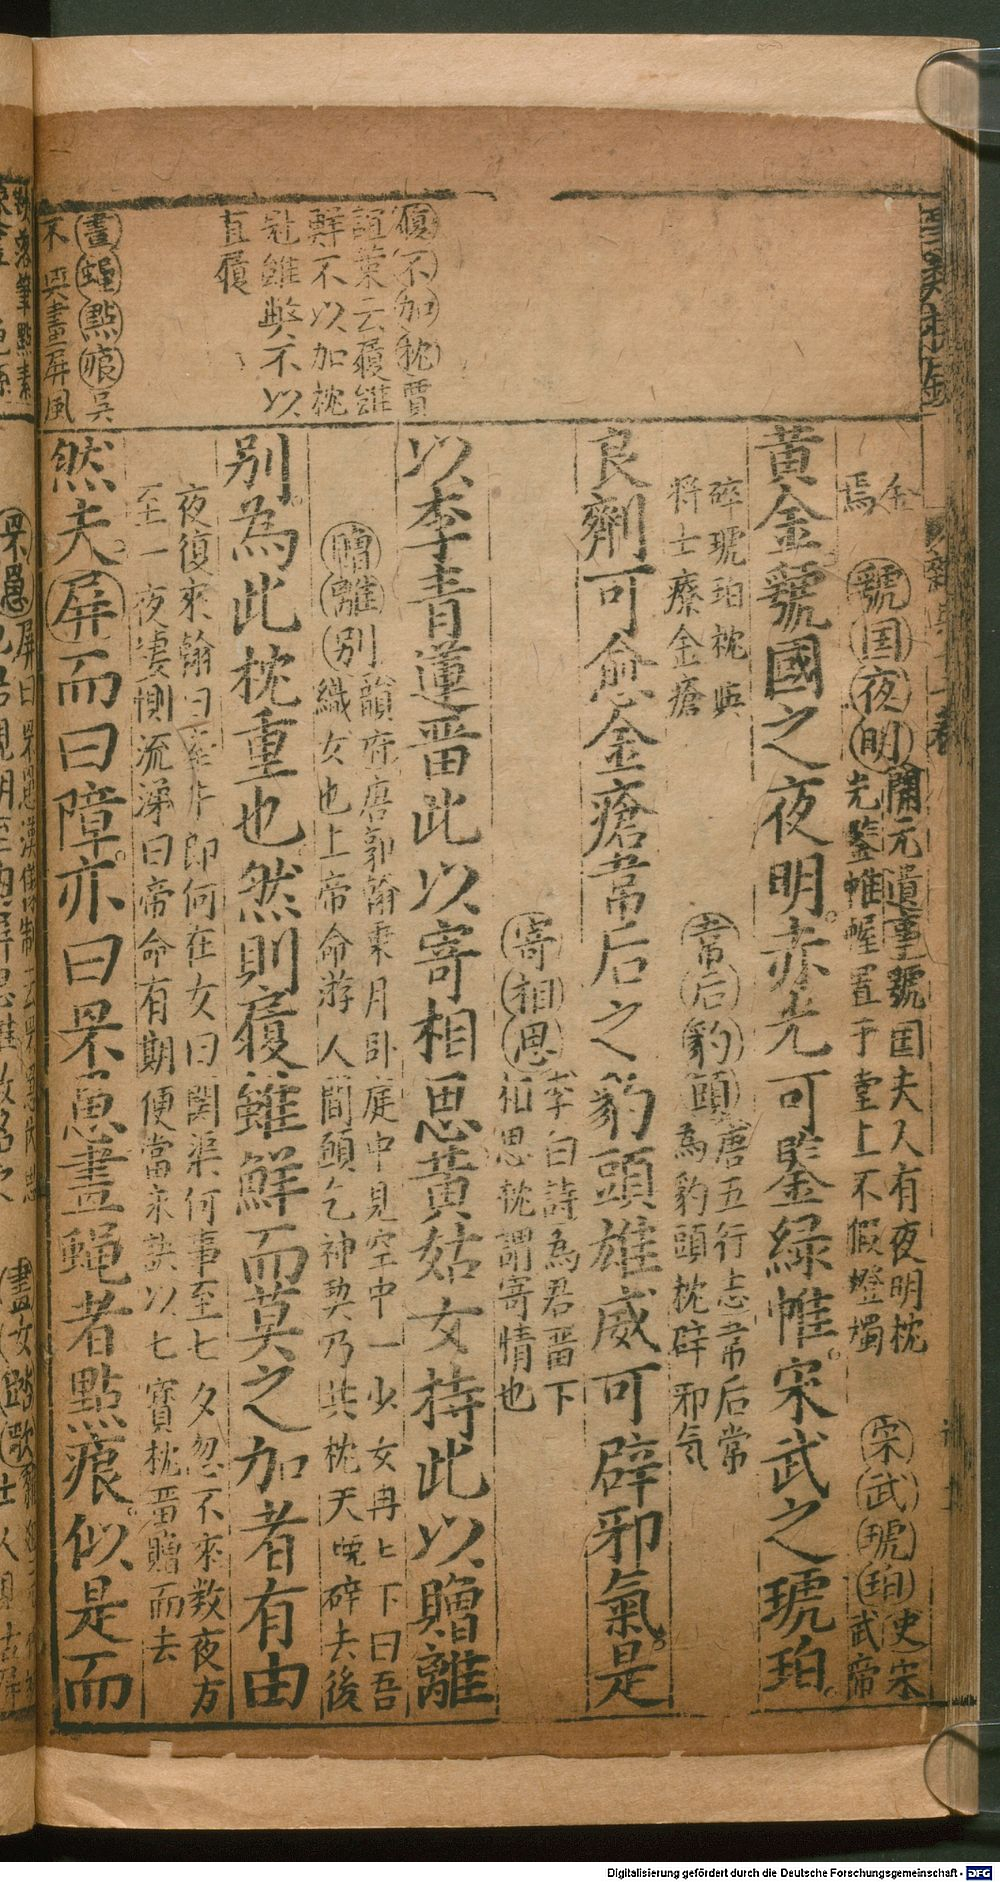 履不加枕賈
誼策云履雖
鮮不以加枕
冠雖弊不以
直履
畫蝇點痕吳
不興畫屏風
金
焉
虢国夜明開元遺事虢国夫人有夜明枕
光鉴帷幄置于堂上不假燈燭
宋武琥珀史宋
武帝
黄金虢國之夜明亦光可鑒緑帷宋武之琥珀
碎琥珀枕與
将士療金瘡
韋后豹頭唐五行志韋后常
為豹頭枕辟邪気
良劑可愈金瘡韋后之豹頭雄威可辟邪氣是
寄相思李白詩為君畱下
相思枕謂寄情也
以李青蓮畱此以寄相思黄姑女持此以贈離
贈離别韻府唐郭翰乘月卧庭中見空中一少女冉匕下曰吾
織女也上帝命游人間願乞神契乃共枕天晓辞去後
别為此枕重也然則履雖鮮而莫之加者有由
夜復來翰曰牽牛即何在女曰関渠何事至七夕忽不來数夜方
至一夜凄惻流涕曰帝命有期便當永訣以七寳枕畱贈而去
然夫屏而曰障亦曰罘罳畫蝇者點痕似是而
Digitalisierung gefördert durch die Deutsche Forschungsgemeinschaft - DFG